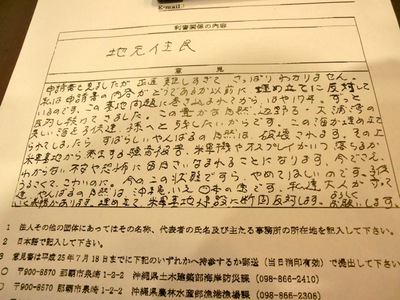 E-mail:
利害関係の内容
地元住民
意見
申請書を見ましたが正直難しすぎてさっぱりわかりません。
私は申請書の内容がどうであるか以前に埋め立てに反対して
いるのです。この基地問題に巻き込まれてから、16や17年。ずっと
反対し続けてきました。この豊かな自然、辺野古、大浦湾の
美しい海を子供達、孫へと残したいからです。この海が埋め立て
られてしまたら、すばらしいやんばるの自然は、破壊されます。その上
米軍基地から発生する騒音被害、米軍機やオスプレイがいつ落ちるか
わからない不安や恐怖に毎日さいなまれることになります。今でさえ、
うるさくて、こわいのに。今のこの状態ですら、やめてほしいのです。
やんばるの自然は沖縄、いえ日本の宝です。私達大人が守って
埋めたて、米軍基地建設に断固反対します。
1 法人その他の団体にあってはその名称、代表者の氏名及び主たる事務所の所在地を記入して下さい。
2 日本語で記入して下さい。
3 意見書は平成25年7月18日までに下記のいずれかへ持参するか郵送(当日消印有効)で提出して下さい。
〒900-8570 那覇市泉崎1-2-2 沖縄県土木建築部海岸防災課 (098-866-2410)
〒900-8570 那覇市泉崎1-2-2 沖縄県農林水産部漁港漁場課